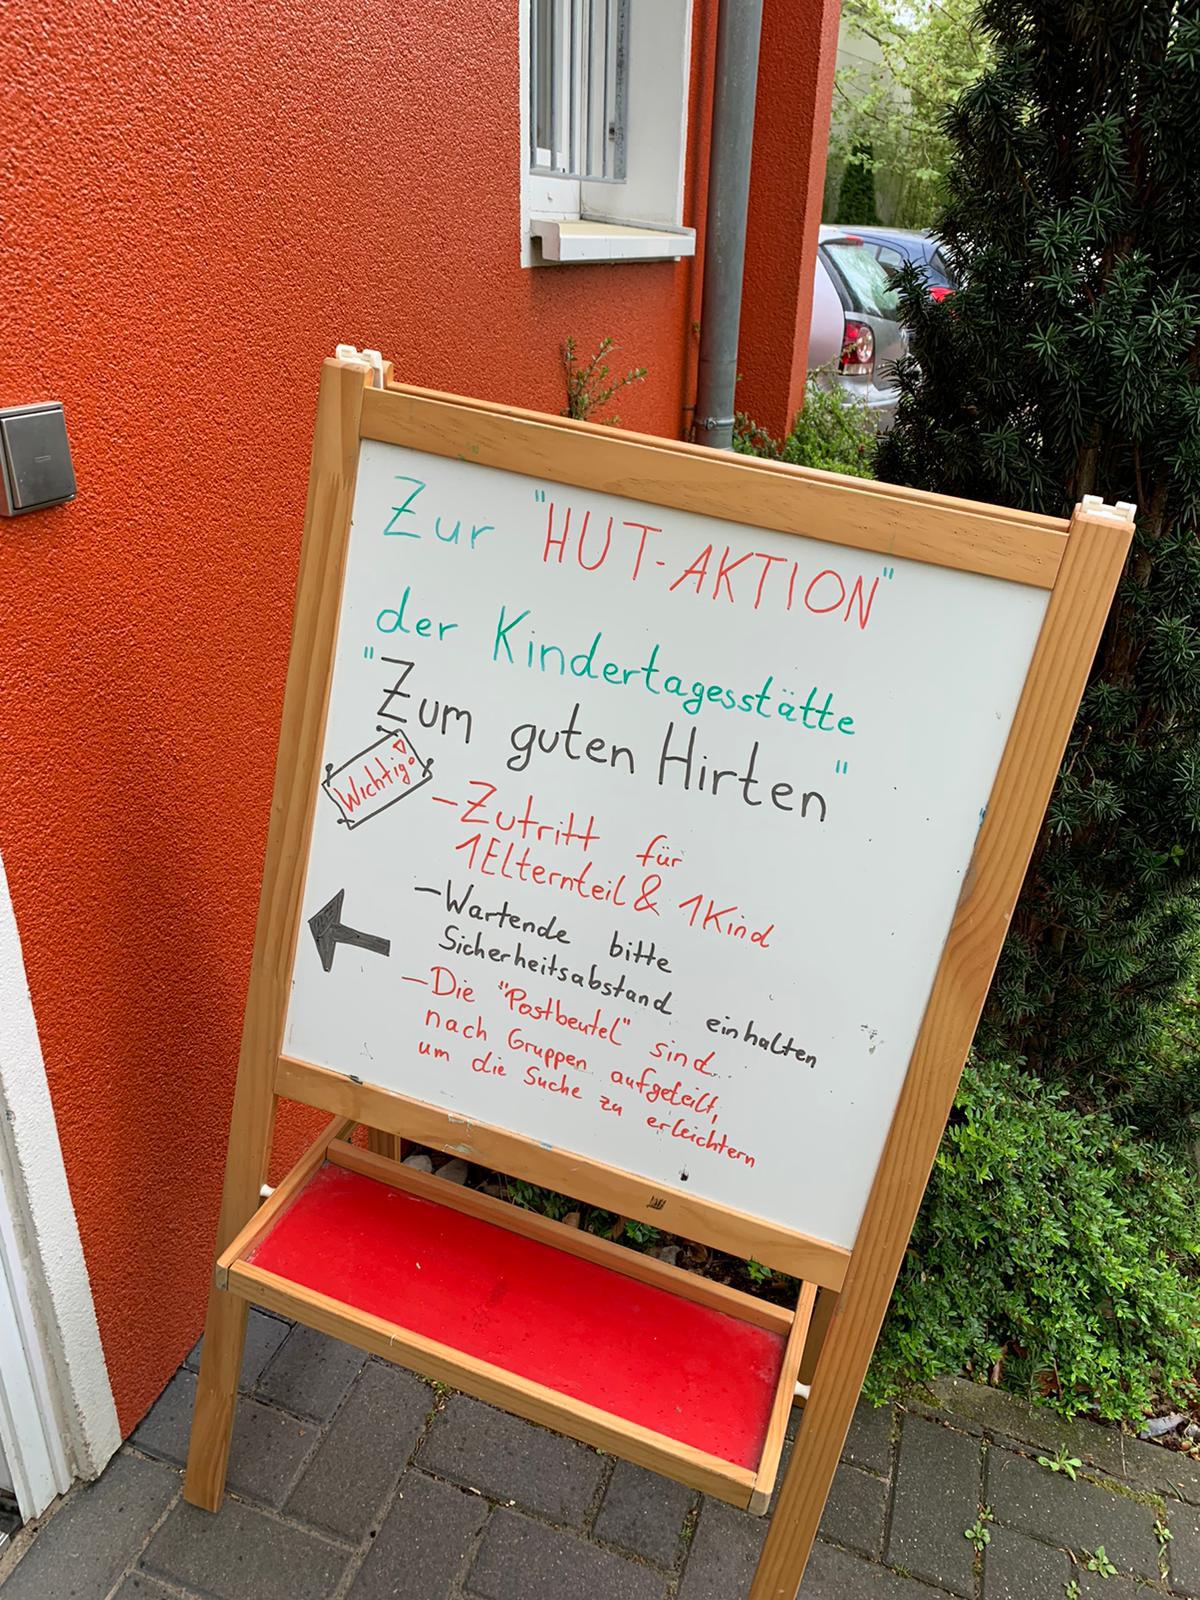 Zur "HUT-AKTION"
der Kindertagesstätte
"Zum guten Hirten"
Wichtig!
- Zutritt für
1 Elternteil & 1 Kind
- Wartende bitte
Sicherheitsabstand einhalten
- Die "Postbeutel" sind
nach Gruppen aufgeteilt,
um die Suche zu erleichtern